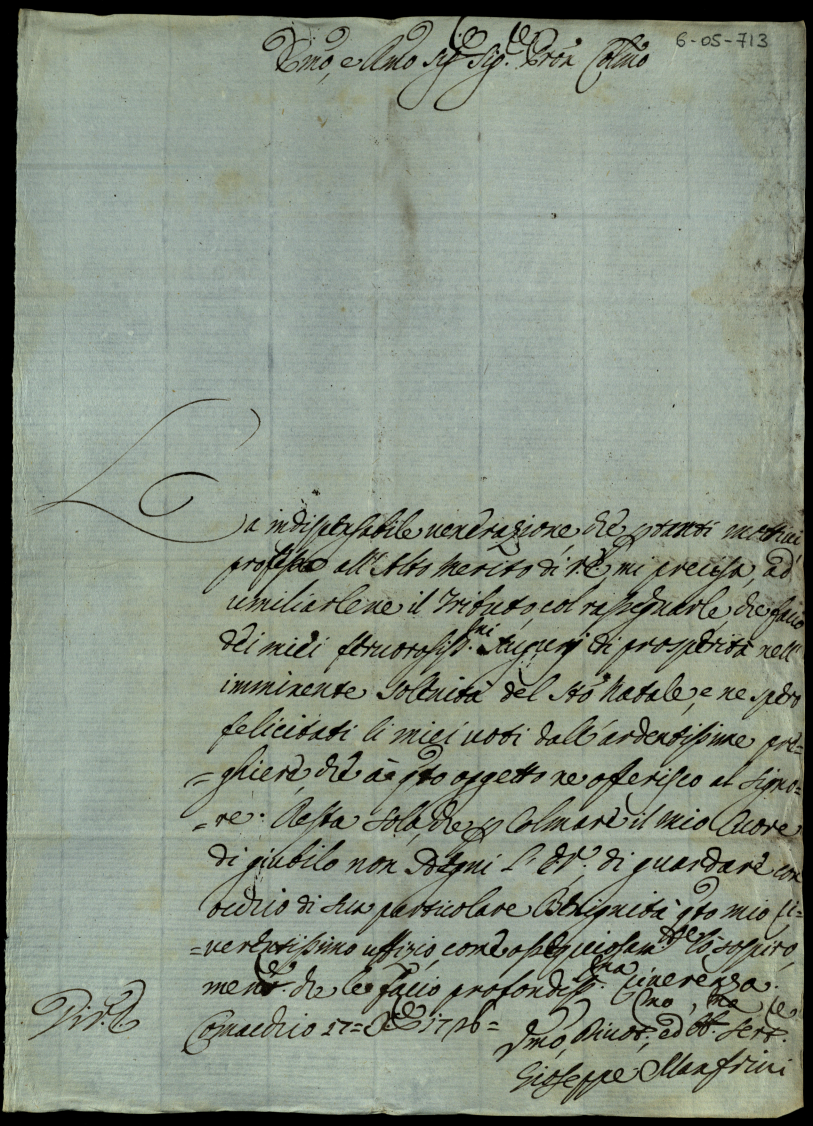 6-05-713
Rmo, e Pmo Sigr. Sigr. Pron Colmo
La indispensabile venerazione che p tanti mottivi
professo all'Alto Merito di V. E. mi precisa, ad
umiliarlene il Tributo, col rassegnarle, che facio
dei miei fervorosiss.mi Augurj di prosperità nell'
imminente Solenità del Sto Natale, e ne spero
felicitati li miei voti dall'ardentissime pre=
=ghiere, che a qto oggetto ne offerisco al Signo=
=re. Resta solo, che p Colmare il mio Cuore
di giubilo non sdegni l'E. V., di guardare con
occhio di sua particolare Benignità qto mio, ri=
=verentissimo uffizio, come ossequiosam.te lo sospiro,
mentr. che le facio profondiss.ma riverenza.
Comacchio 17= Xbre 1726=
Di V. E.
Dmo, Divot.mo, ed Obb.mo Serr.e
Gioseppe Manfrini